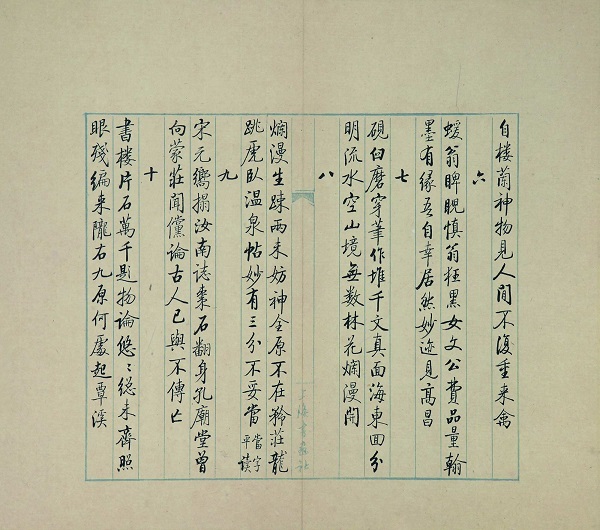 自楼蘭神物見人間不復重来禽
六
蝯翁睥睨慎翁狂黑女文公費品量翰
墨有缘吾自幸居然妙迹見高昌
七
硯臼磨穿筆作堆千文真面海東回分
明流水空山境無数林花爛漫開
八
爛漫生疎兩未妨神全原不在矜莊龍
跳虎卧温泉帖妙有三分不妥當
當字
平读
九
宋元嚮搨汝南誌棗石翻身孔廟堂曾
向蒙莊聞儻論古人已與不傳亡
十
書楼片石萬千題物論悠〻総未齊照
眼殘編来隴右九原何處起覃溪